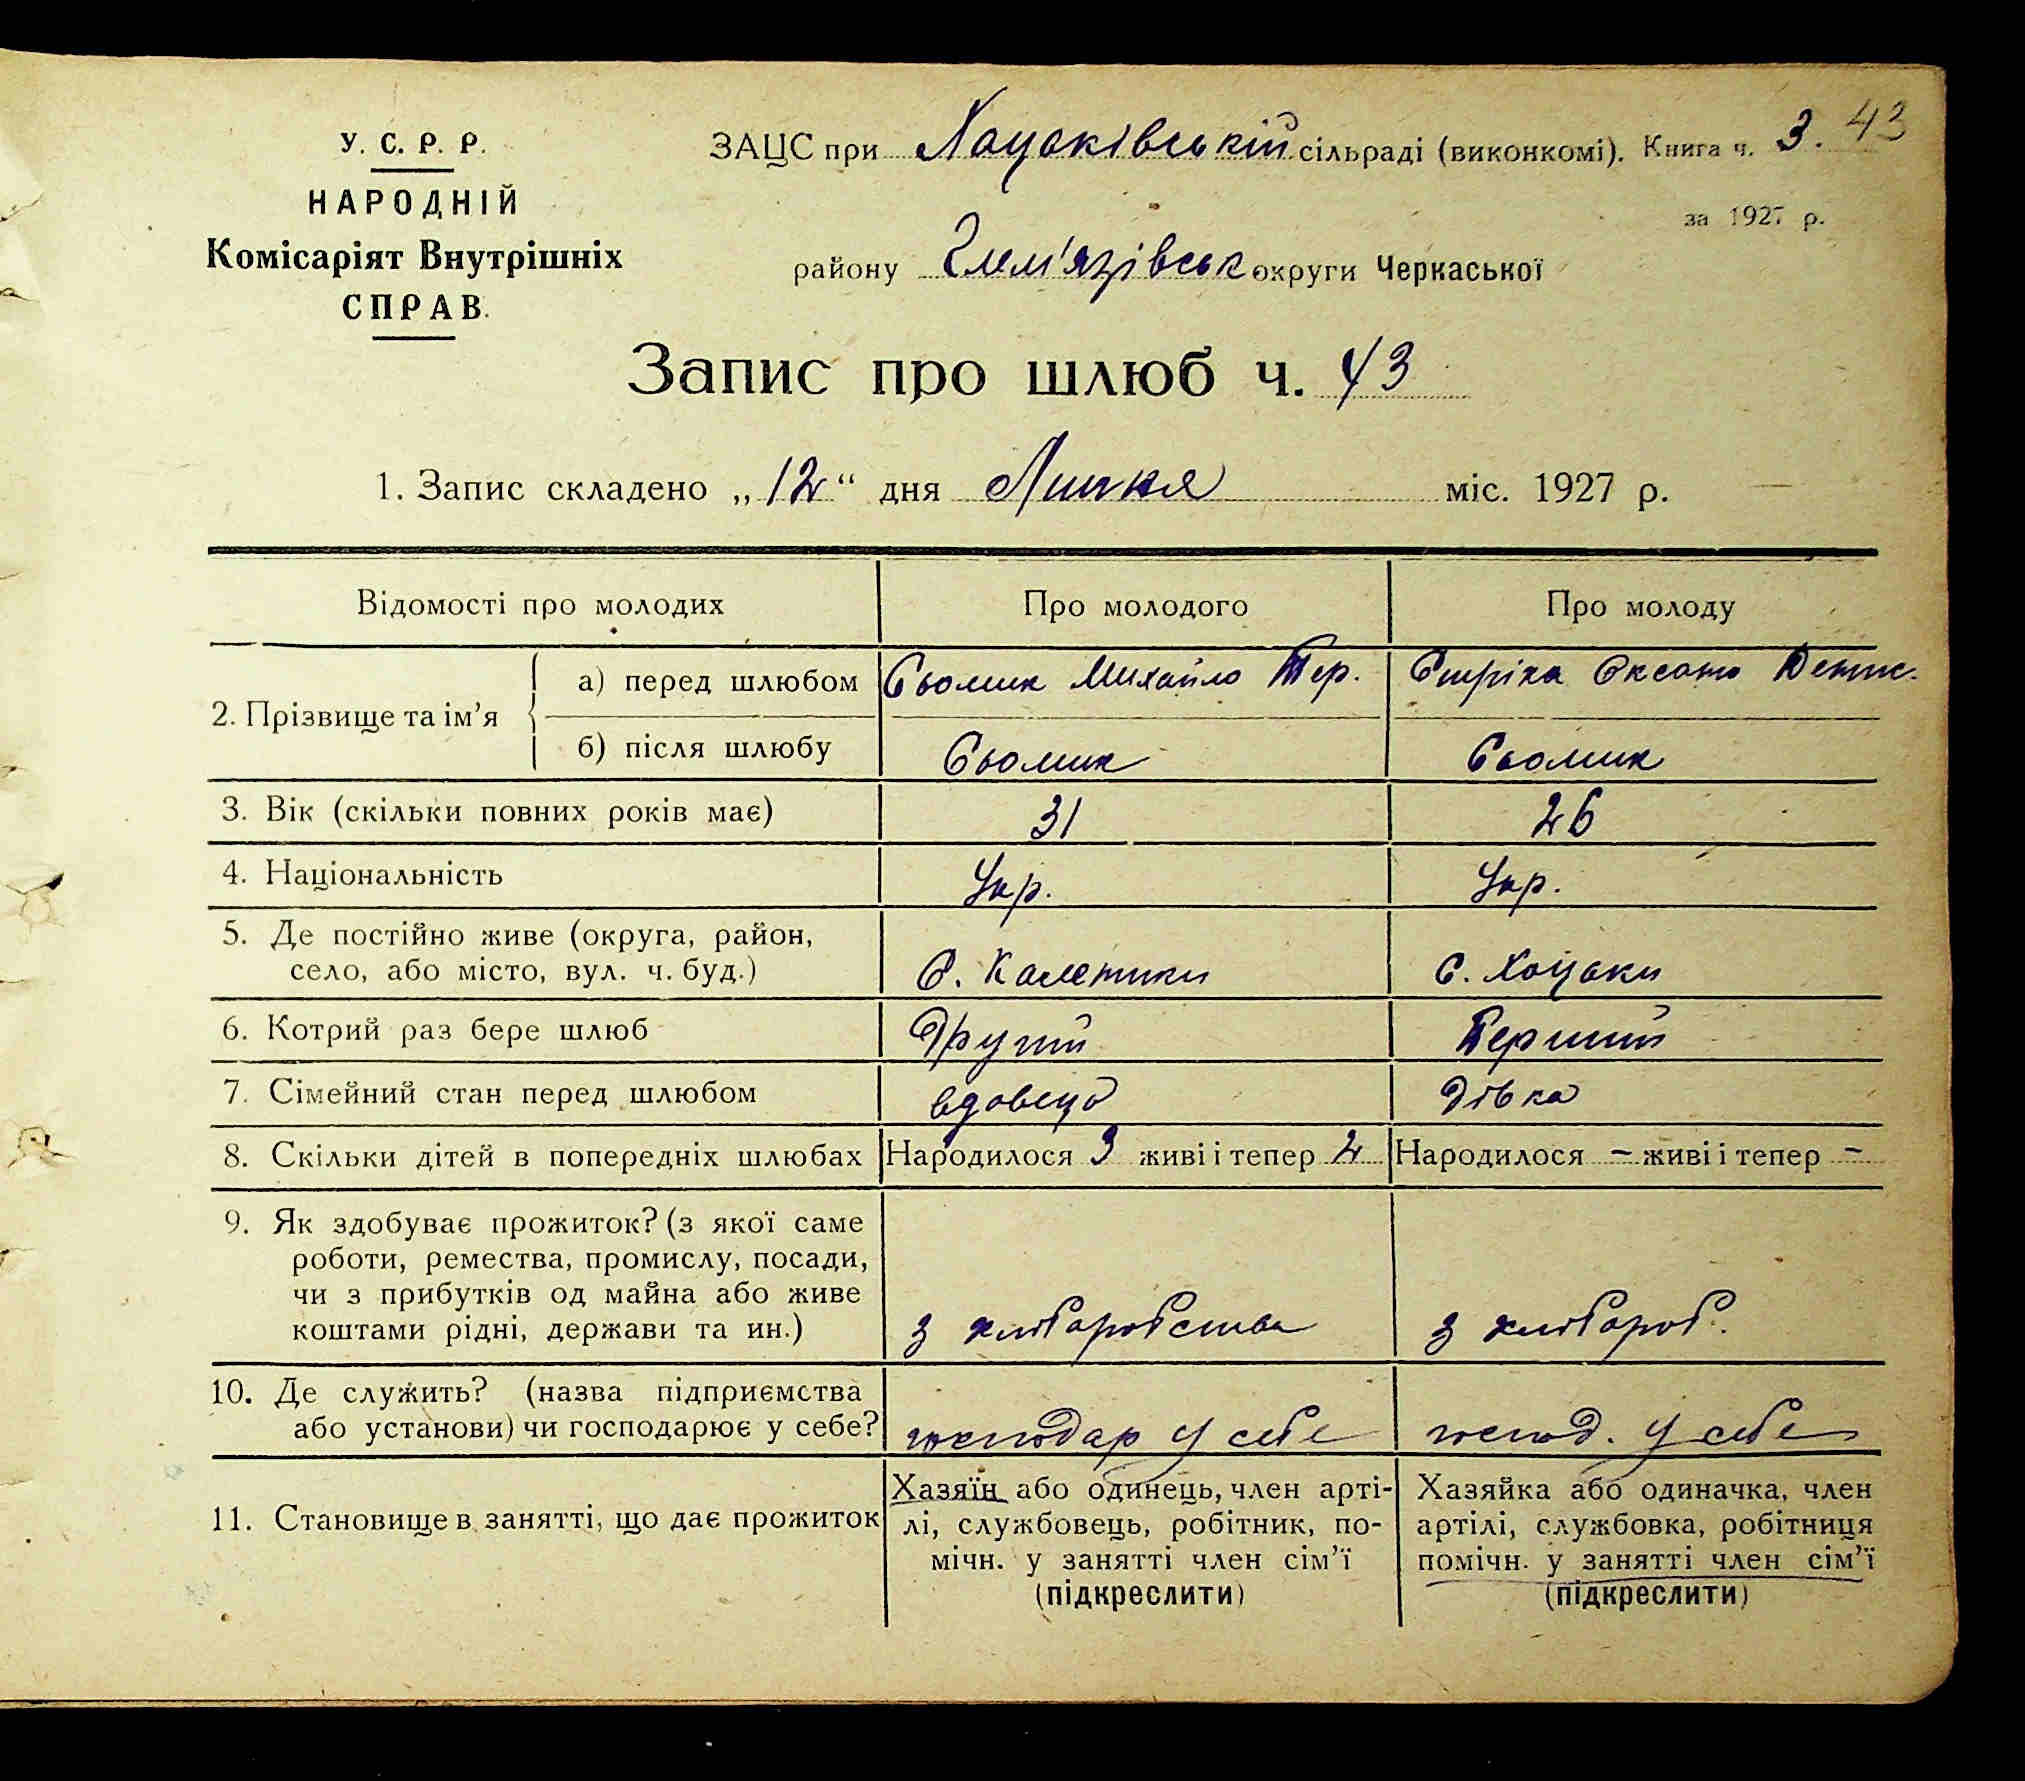 У. С. Р. Р.
НАРОДНІЙ
Комісаріят Внутрішніх
СПРАВ.
ЗАЦС при Хоцьківській сільраді (виконкомі). Книга ч. 3. 43
за 1927 р.
району Гельм'язівськ округи Черкаської
Запис про шлюб ч. 43
1. Запис складено „12“ дня Липня міс. 1927 р.
Відомості про молодих Про молодого Про молоду
2. Прізвище та ім’я
а) перед шлюбом Сьомик Михайло Тер. Стріха Оксана Денис.
б) після шлюбу Сьомик Сьомик
3. Вік (скільки повних років має) 31 26
4. Національність Укр. Укр.
5. Де постійно живе (округа, район,
село, або місто, вул. ч. буд.) С. Калєтики с. Хоцьки
6. Котрий раз бере шлюб Другий Перший
7. Сімейний стан перед шлюбом вдовець дівка
8. Скільки дітей в попередніх шлюбах Народилося 3 живі і тепер 2 Народилося – живі і тепер –
9. Як здобуває прожиток? (з якої саме
роботи, ремества, промислу, посади,
чи з прибутків од майна або живе
коштами рідні, держави та ин.) з хліборобства з хлібороб.
10. Де служить? (назва підприємства
або установи) чи господарює у себе? господар у себе господ. у себе
11. Становище в занятті, що дає прожиток
Хазяїн або одинець, член арті-
лі, службовець, робітник, по-
мічн. у занятті член сім’ї
(підкреслити)
Хазяйка або одиначка, член
артілі, службовка, робітниця
помічн. у занятті член сім’ї
(підкреслити)